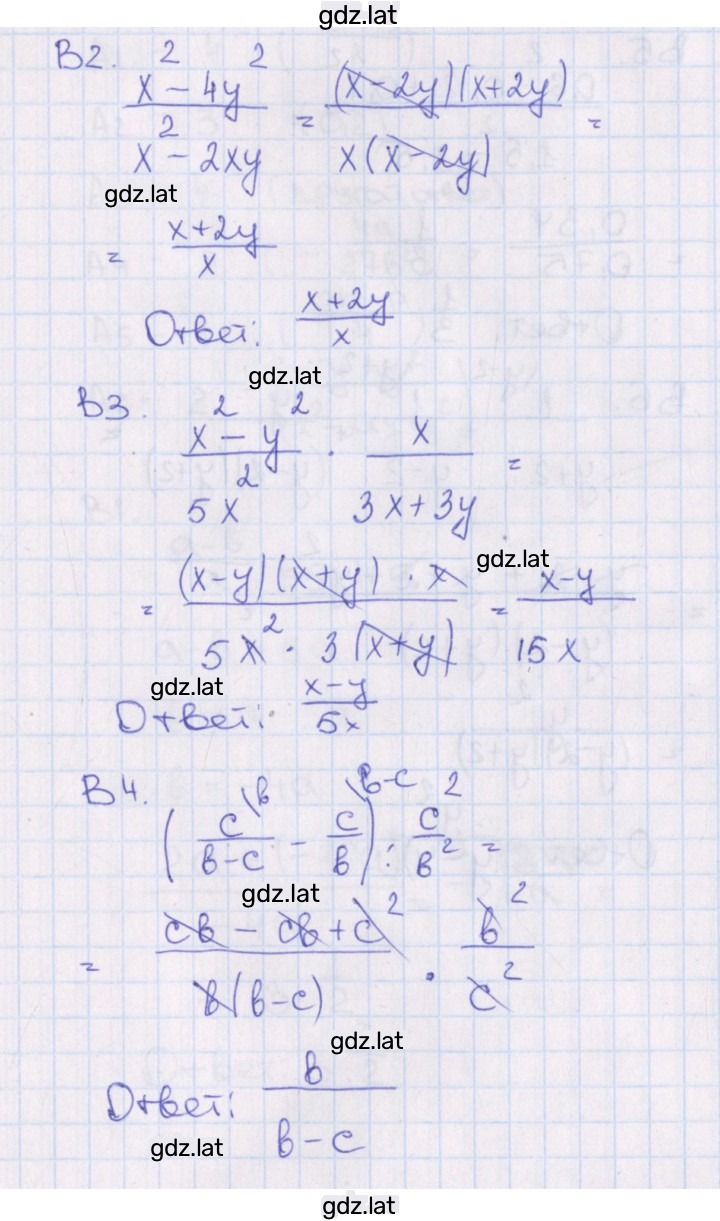 gdz.lat
B2. (x² - 4y²)/(x² - 2xy) = ((x-2y)(x+2y))/(x(x-2y)) =
gdz.lat
= (x+2y)/x
Ответ: (x+2y)/x
gdz.lat
B3. (x² - y²)/(5x²) · x/(3x+3y) =
gdz.lat
= ((x-y)(x+y)·x)/(5x²·3(x+y)) = (x-y)/(15x)
gdz.lat
Ответ: (x-y)/(5x)
B4. (c\в/(в-c) - c\в-c/в) : c²/в² =
gdz.lat
= (cв - cв + c²)/(в(в-c)) · в²/c²
gdz.lat
Ответ: в/(в-c)
gdz.lat
gdz.lat